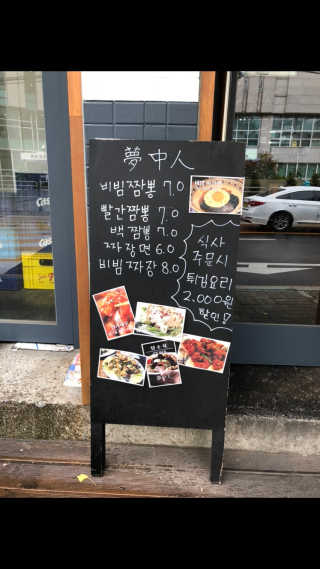 夢中人
비빔짬뽕 7.0
빨간짬뽕 7.0
백짬뽕 7.0
짜장면 6.0
비빔짜장 8.0
식사
주문시
튀김요리
2.000원
할인!